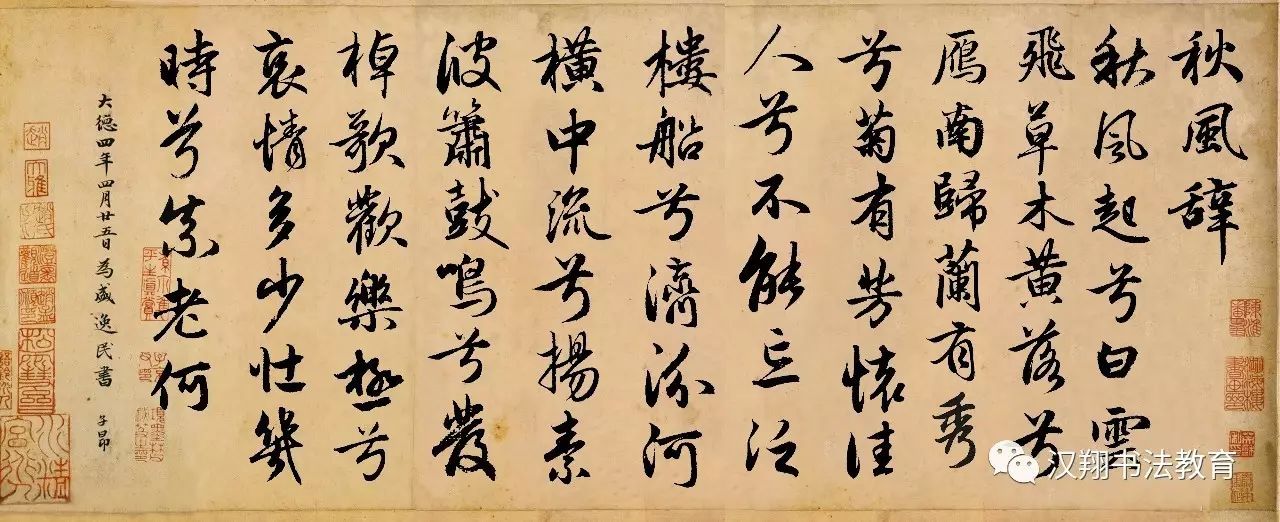 秋風辞
秋風起兮白雲
飛草木黄落兮
鴈南歸蘭有秀
兮菊有芳懷佳
人兮不能忘泛
樓船兮濟汾河
橫中流兮揚素
波簫鼓鳴兮發
棹歌歡樂極兮
哀情多少壮幾
時兮奈老何
大德四年四月廿五日為盛逸民書 子昂
汉翔书法教育